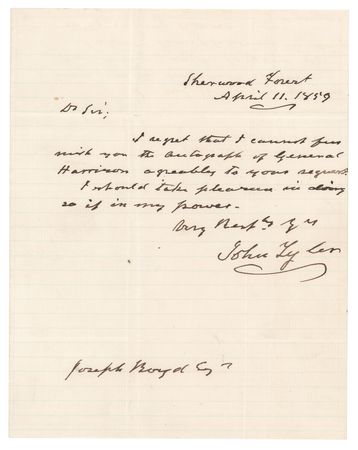 Sherwood Forest
April 11. 1859
Dr Sir;
I regret that I cannot fur
nish you the Autograph of General
Harrison agreeably to your request.
I should take pleasure in doing
so if in my power.
Very Respy Yrs
John Tyler
Joseph Boyd Esqr